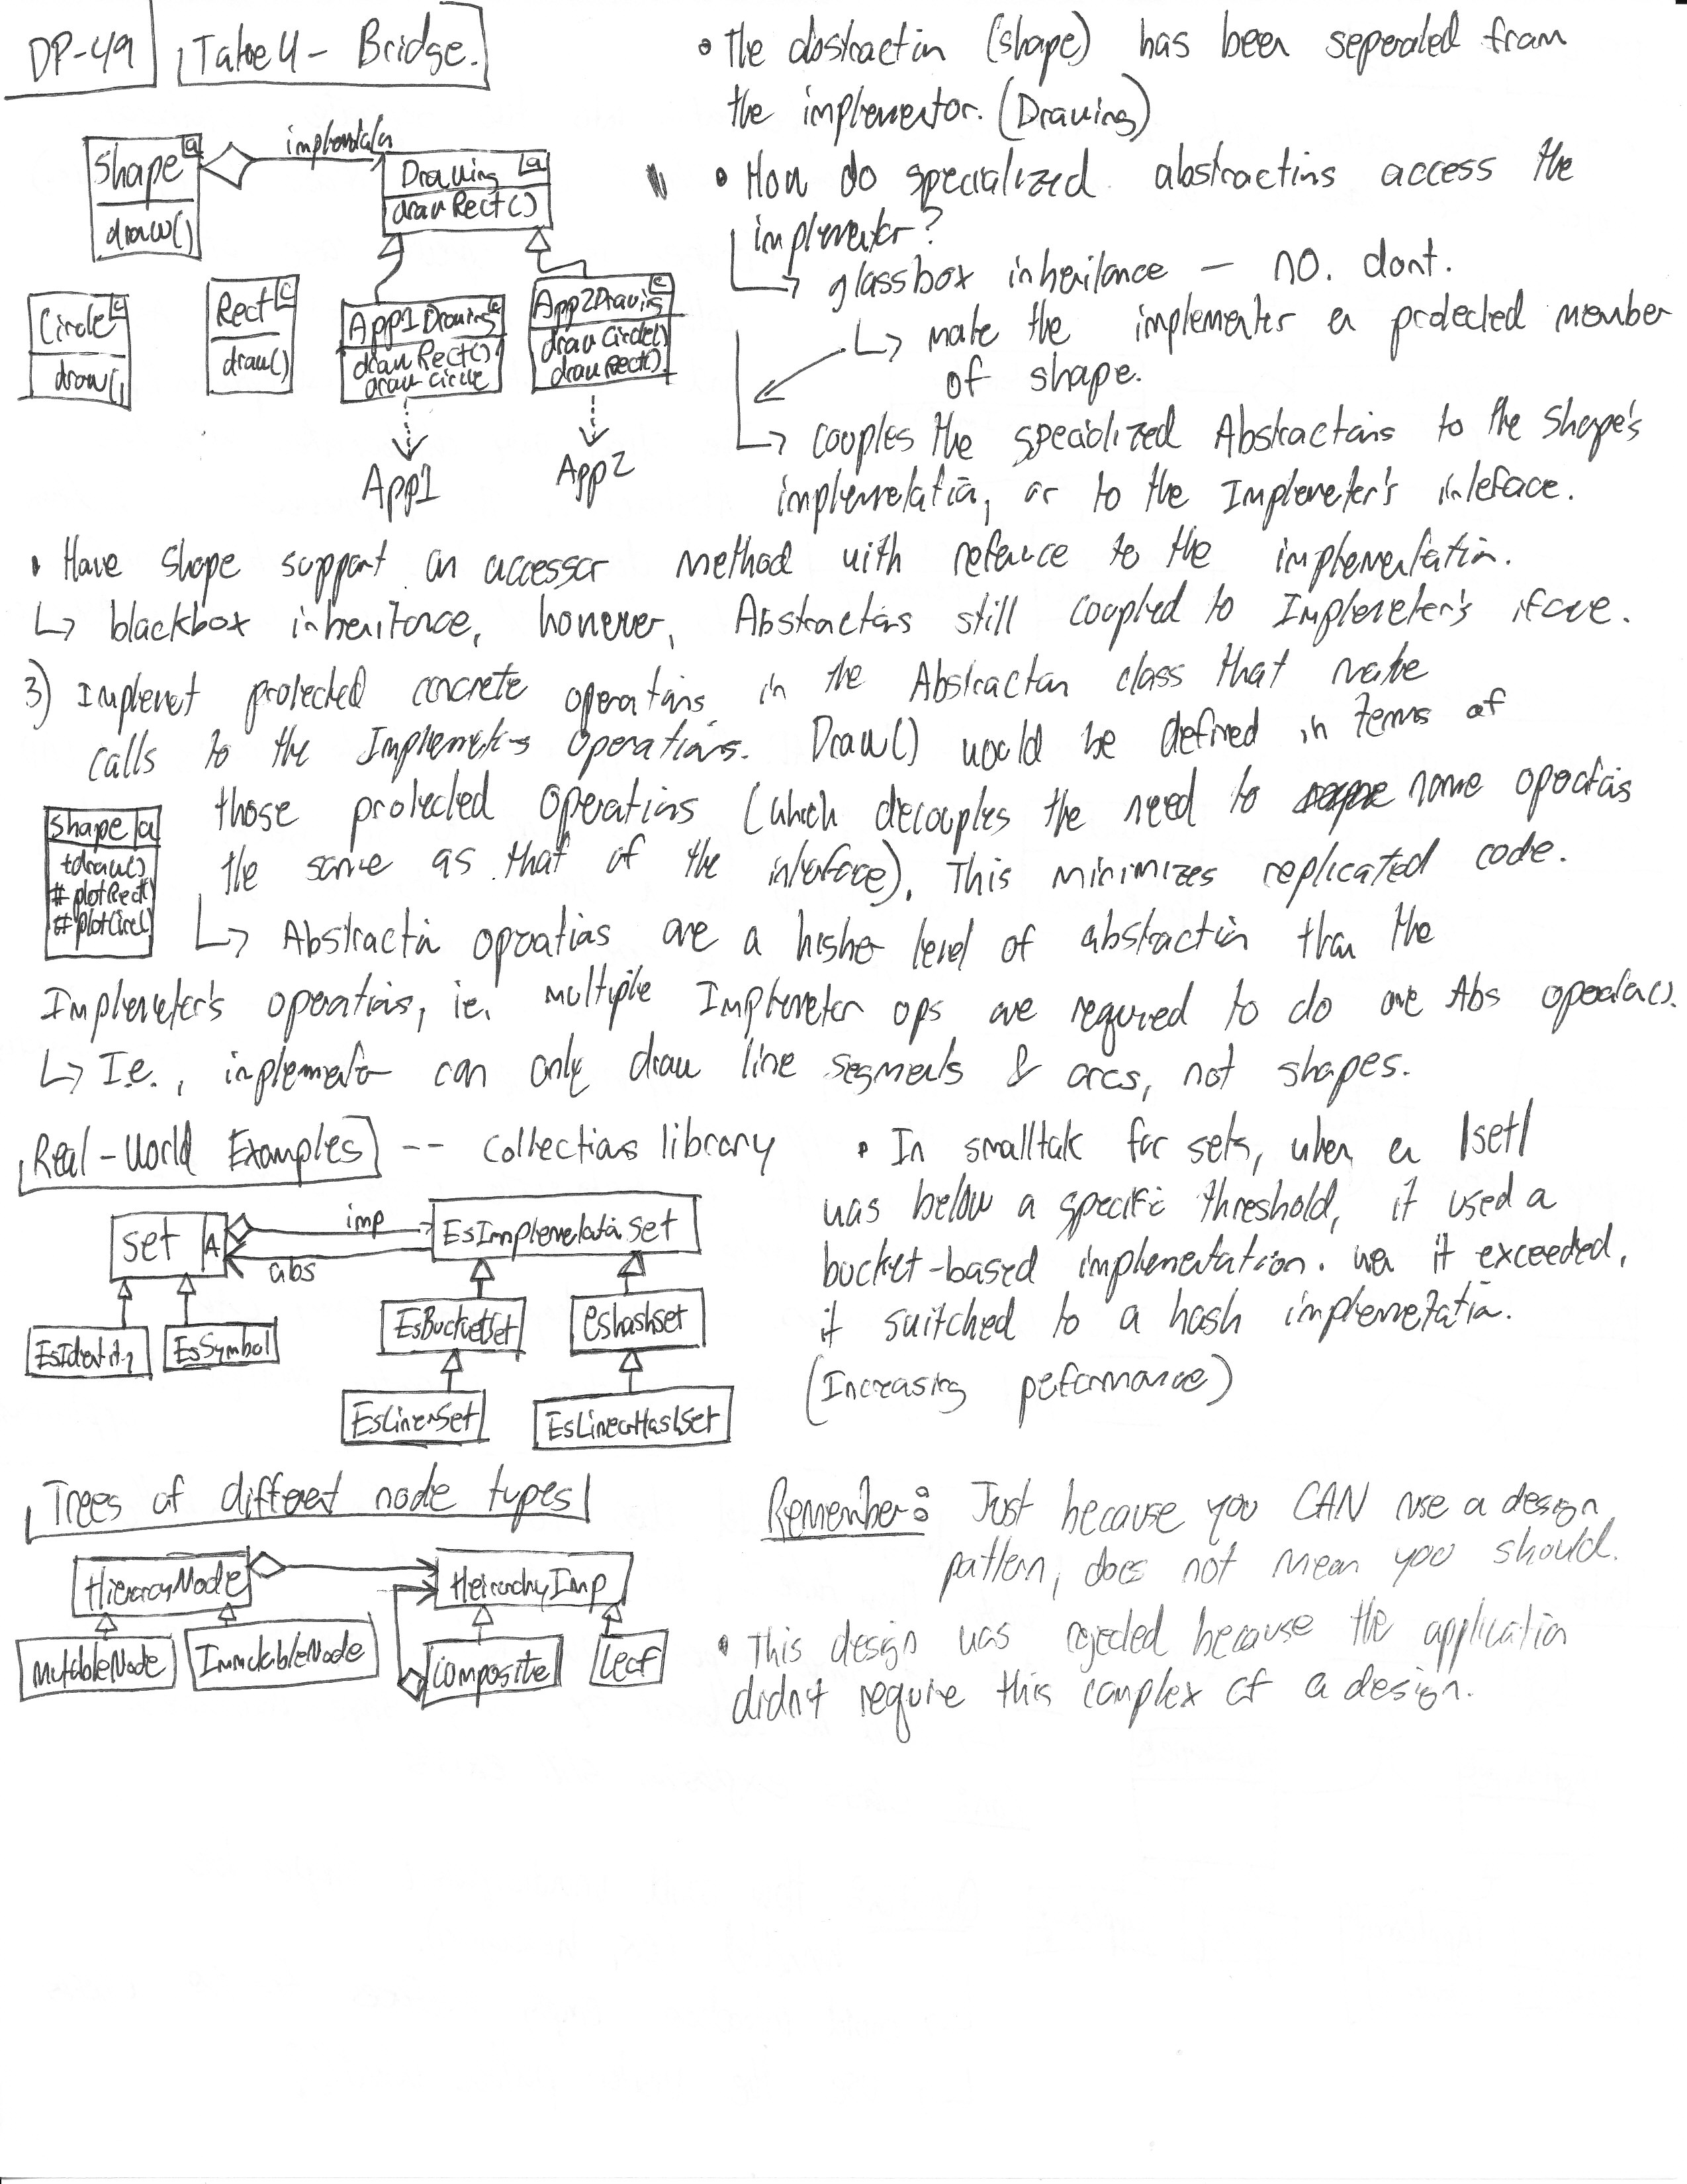 DP-49
Take 4 - Bridge.
Shape
a
draw()
Drawing
a
drawRect()
Circle
c
draw()
Rect
c
draw()
App1Drawing
c
drawRect()
draw circle
App2Drawing
c
drawCircle()
drawRect()
App1
App2
• The abstraction (shape) has been seperated from
the implementor. (Drawing)
• How do specialized abstractions access the
implementor?
↳ glassbox inheritance - no. dont.
↳ make the implementer a protected member
of shape.
↳ couples the specialized Abstractions to the Shape's
implementation, or to the Implementer's interface.
• Have shape support an accessor method with refernce to the implementation.
↳ blackbox inheritance, however, Abstractions still coupled to Implementer's iface.
3) Implement protected concrete operations in the Abstraction class that make
calls to the Implementors operations. Draw() would be defined in terms of
those protected operations (which decouples the need to name operations
the same as that of the interface). This minimizes replicated code.
Shape
a
+draw()
# plotRect()
# plotCirc()
↳ Abstraction operations are a higher level of abstraction than the
Implementer's operations, ie. multiple Implementor ops are required to do one Abs operation.
↳ I.e., implementor can only draw line segments & arcs, not shapes.
Real-World Examples -- Collections library
Set
A
imp
abs
EsImplementationSet
EsIdentity
EsSymbol
EsBucketSet
EsHashSet
EsLinearSet
EsLinearHashSet
• In smalltalk for sets, when a |set|
was below a specific threshold, it used a
bucket-based implementation. wen it exceeded,
it switched to a hash implementation.
(Increasing peformance)
Trees of different node types
HierarcyNode
HeirarchyImp
MutableNode
ImmutableNode
Composite
Leaf
Remember: Just because you CAN use a design
pattern, does not mean you should.
• This design was rejected because the application
didn't require this complex of a design.